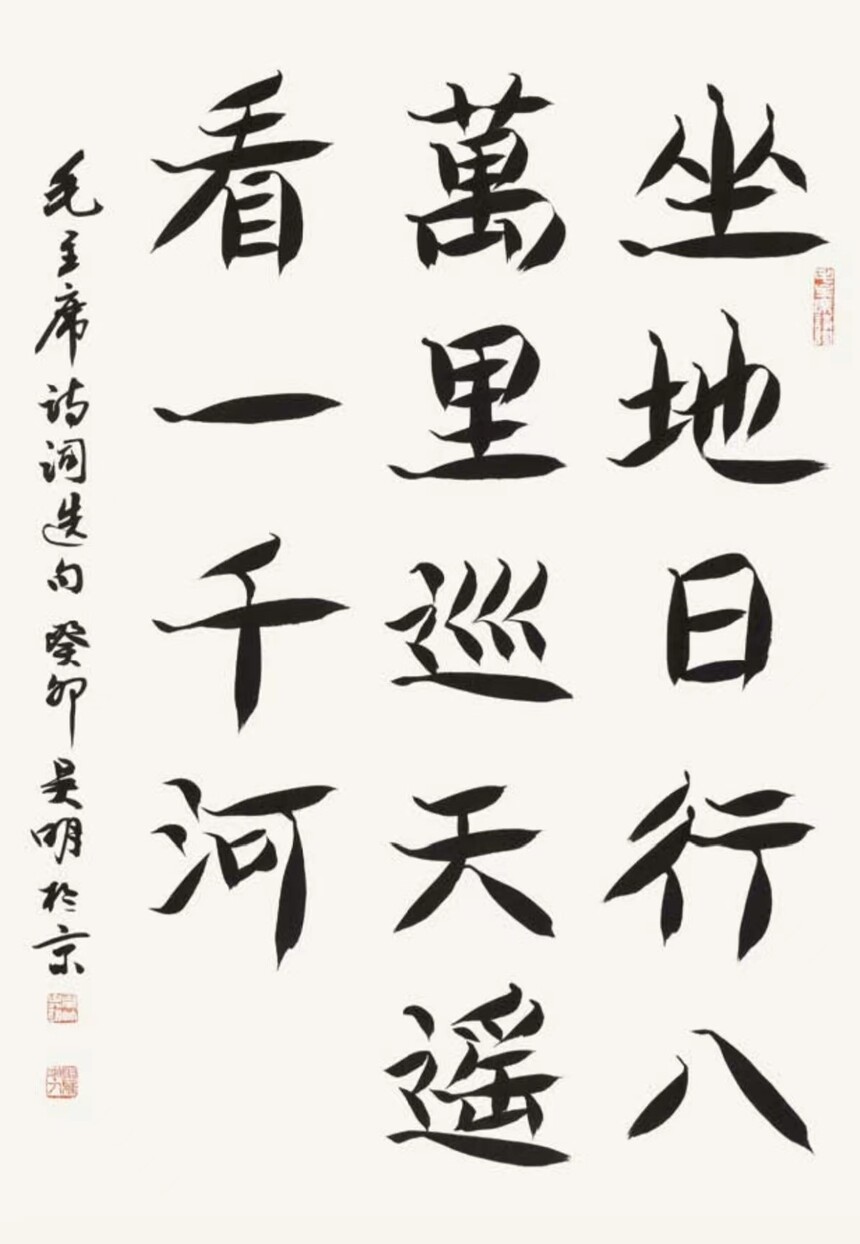 坐地日行八
萬里巡天遥
看一千河
毛主席诗词选句 癸卯 吴明於京